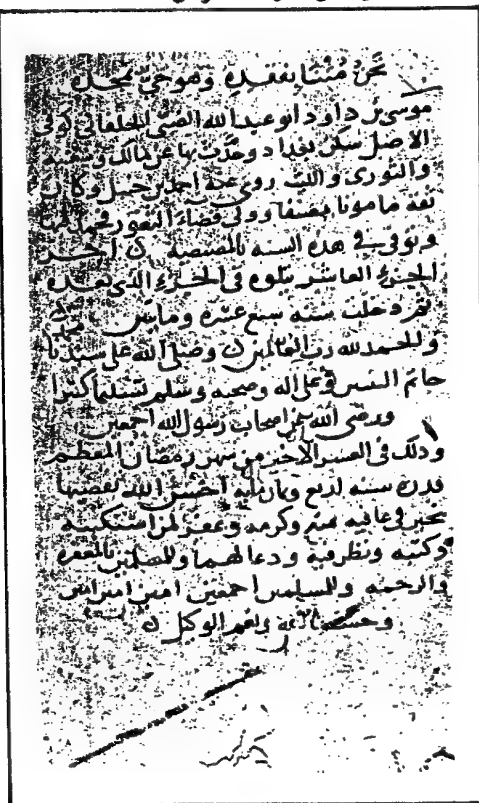 نحن متنا بفقده وهو حي بمجده
موسى بن داود ابو عبد الله الضبي الخلقاني كوفي
الاصل سكن بغداد وحدث بها عن مالك وشعبة
والثوري والليث روى عنه احمد بن حنبل وكان
ثقة مامونا مصنفا وولي قضاء الثغور فحمد فيها
وتوفي في هذه السنه بالمصيصه اخر
الجزء العاشر يتلوه في الجزء الذي بعده
ثم دخلت سنه سبع عشره ومايتين
والحمد لله رب العالمين وصلى الله على سيدنا
خاتم النبيين وعلى اله وصحبه وسلم تسليما كثيرا
ورضي الله عن اصحاب رسول الله اجمعين
وذلك في العشر الاخير من شهر رمضان المعظم
قدره سنه اربع وثمان مايه احسن الله تقضيها
بخير في عافيه بمنه وكرمه وغفر لمن استكتبه
وكتبه ونظر فيه ودعا لهما وللمسلمين بالمغفره
والرحمه وللمسلمين اجمعين امين امين امين
وحسبنا الله ونعم الوكيل